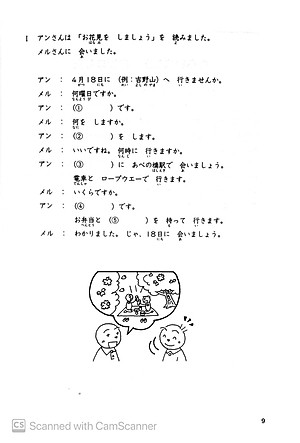 I アンさんは「お花見を しましょう」を 読みました。
はなみ よ
メルさんに 会いました。
あ
アン : 4月18日に (例:吉野山)へ 行きませんか。
がつ にち れい よしのやま い
メル : 何曜日ですか。
なんようび
アン : (① )です。
メル : 何を しますか。
なに
アン : (② )を します。
メル : いいですね。何時に 行きますか。
なんじ い
アン : (③ )に あべの橋駅で 会いましょう。
ばしえき あ
電車と ロープウエーで 行きます。
でんしゃ い
メル : いくらですか。
アン : (④ )です。
お弁当と (⑤ )を 持って 行きます。
べんとう も い
メル : わかりました。じゃ、18日に 会いましょう。
にち あ
9
CS Scanned with CamScanner